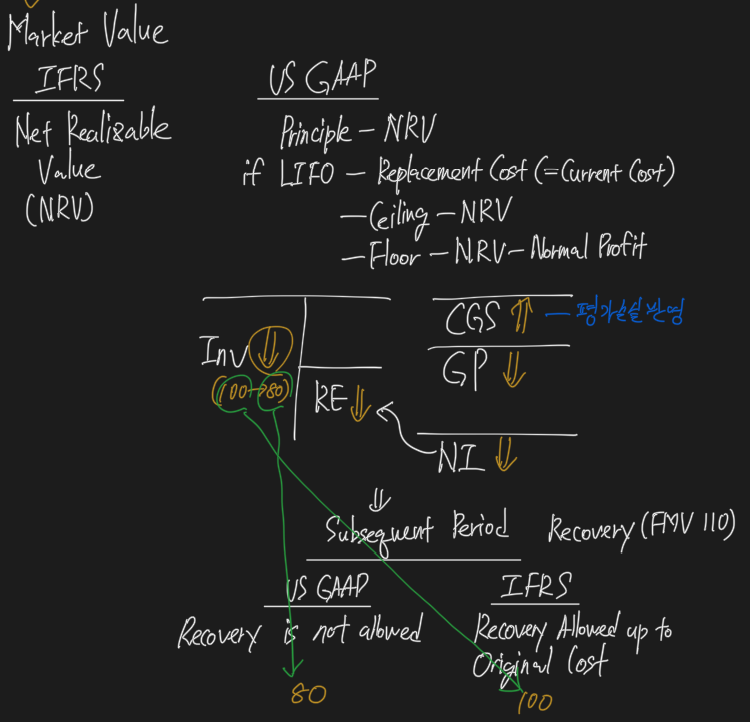 Market Value
IFRS
US GAAP
Net Realizable
Value
(NRV)
Principle – NRV
if LIFO – Replacement Cost (=Current Cost)
– Ceiling – NRV
– Floor – NRV – Normal Profit
Inv ⇓
(100→80)
RE ⇓
CGS ⇑ – 평가손실 반영
GP ⇓
NI ⇓
⇓
Subsequent Period
Recovery (FMV 110)
US GAAP
Recovery is not allowed
80
IFRS
Recovery Allowed up to
Original Cost
100